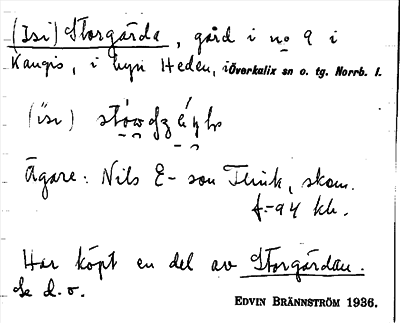 (Isi) Storgårda, gård i no 9 i
Kangis, i byn Heden, i Överkalix sn o. tg. Norrb. l.
(ísı)
Ägare: Nils E-son Flink, skom.
f. -94 kh.
Har köpt en del av Storgårdan.
Se d. o.
EDVIN BRÄNNSTRÖM 1936.